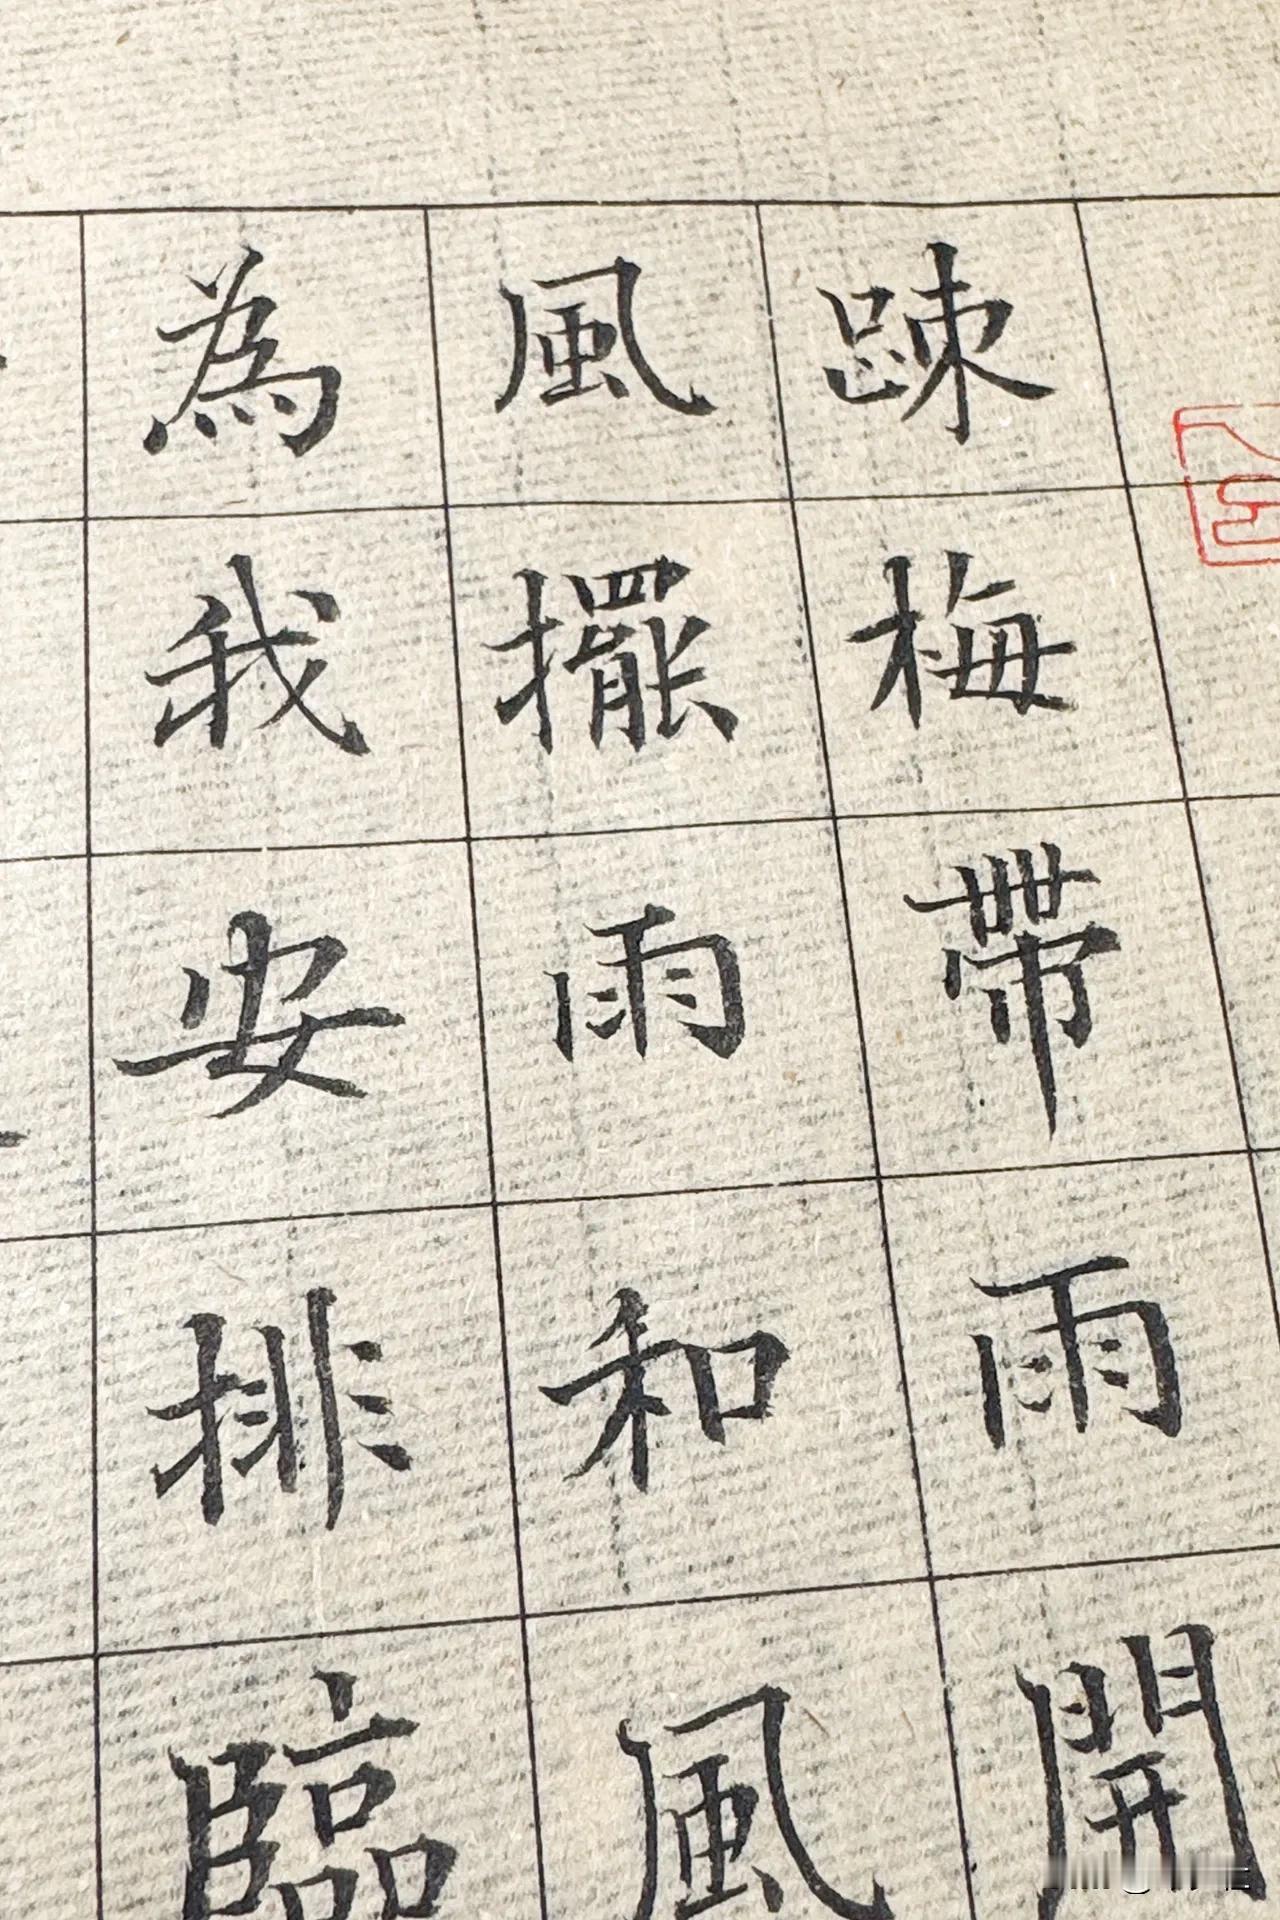 踈梅帶雨開
風擺雨和風
為我安排臨